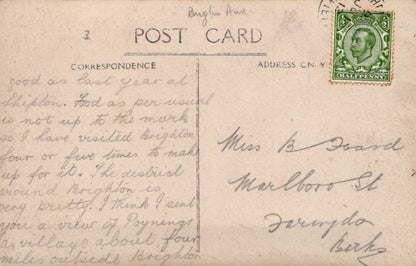 Brighn Ave
3
POST CARD
CORRESPONDENCE
ADDRESS ON Y
HALFPENNY
good as last year at
Shipton. Food as per usual
is not up to the mark
so I have visited Brighton
four or five times to make
up for it. The district
around Brighton is
very pretty. I think I sent
you a view of Poynings
a village about four
miles outside Brighton
Miss B Foard
Marlboro St
Faringdon
Berks